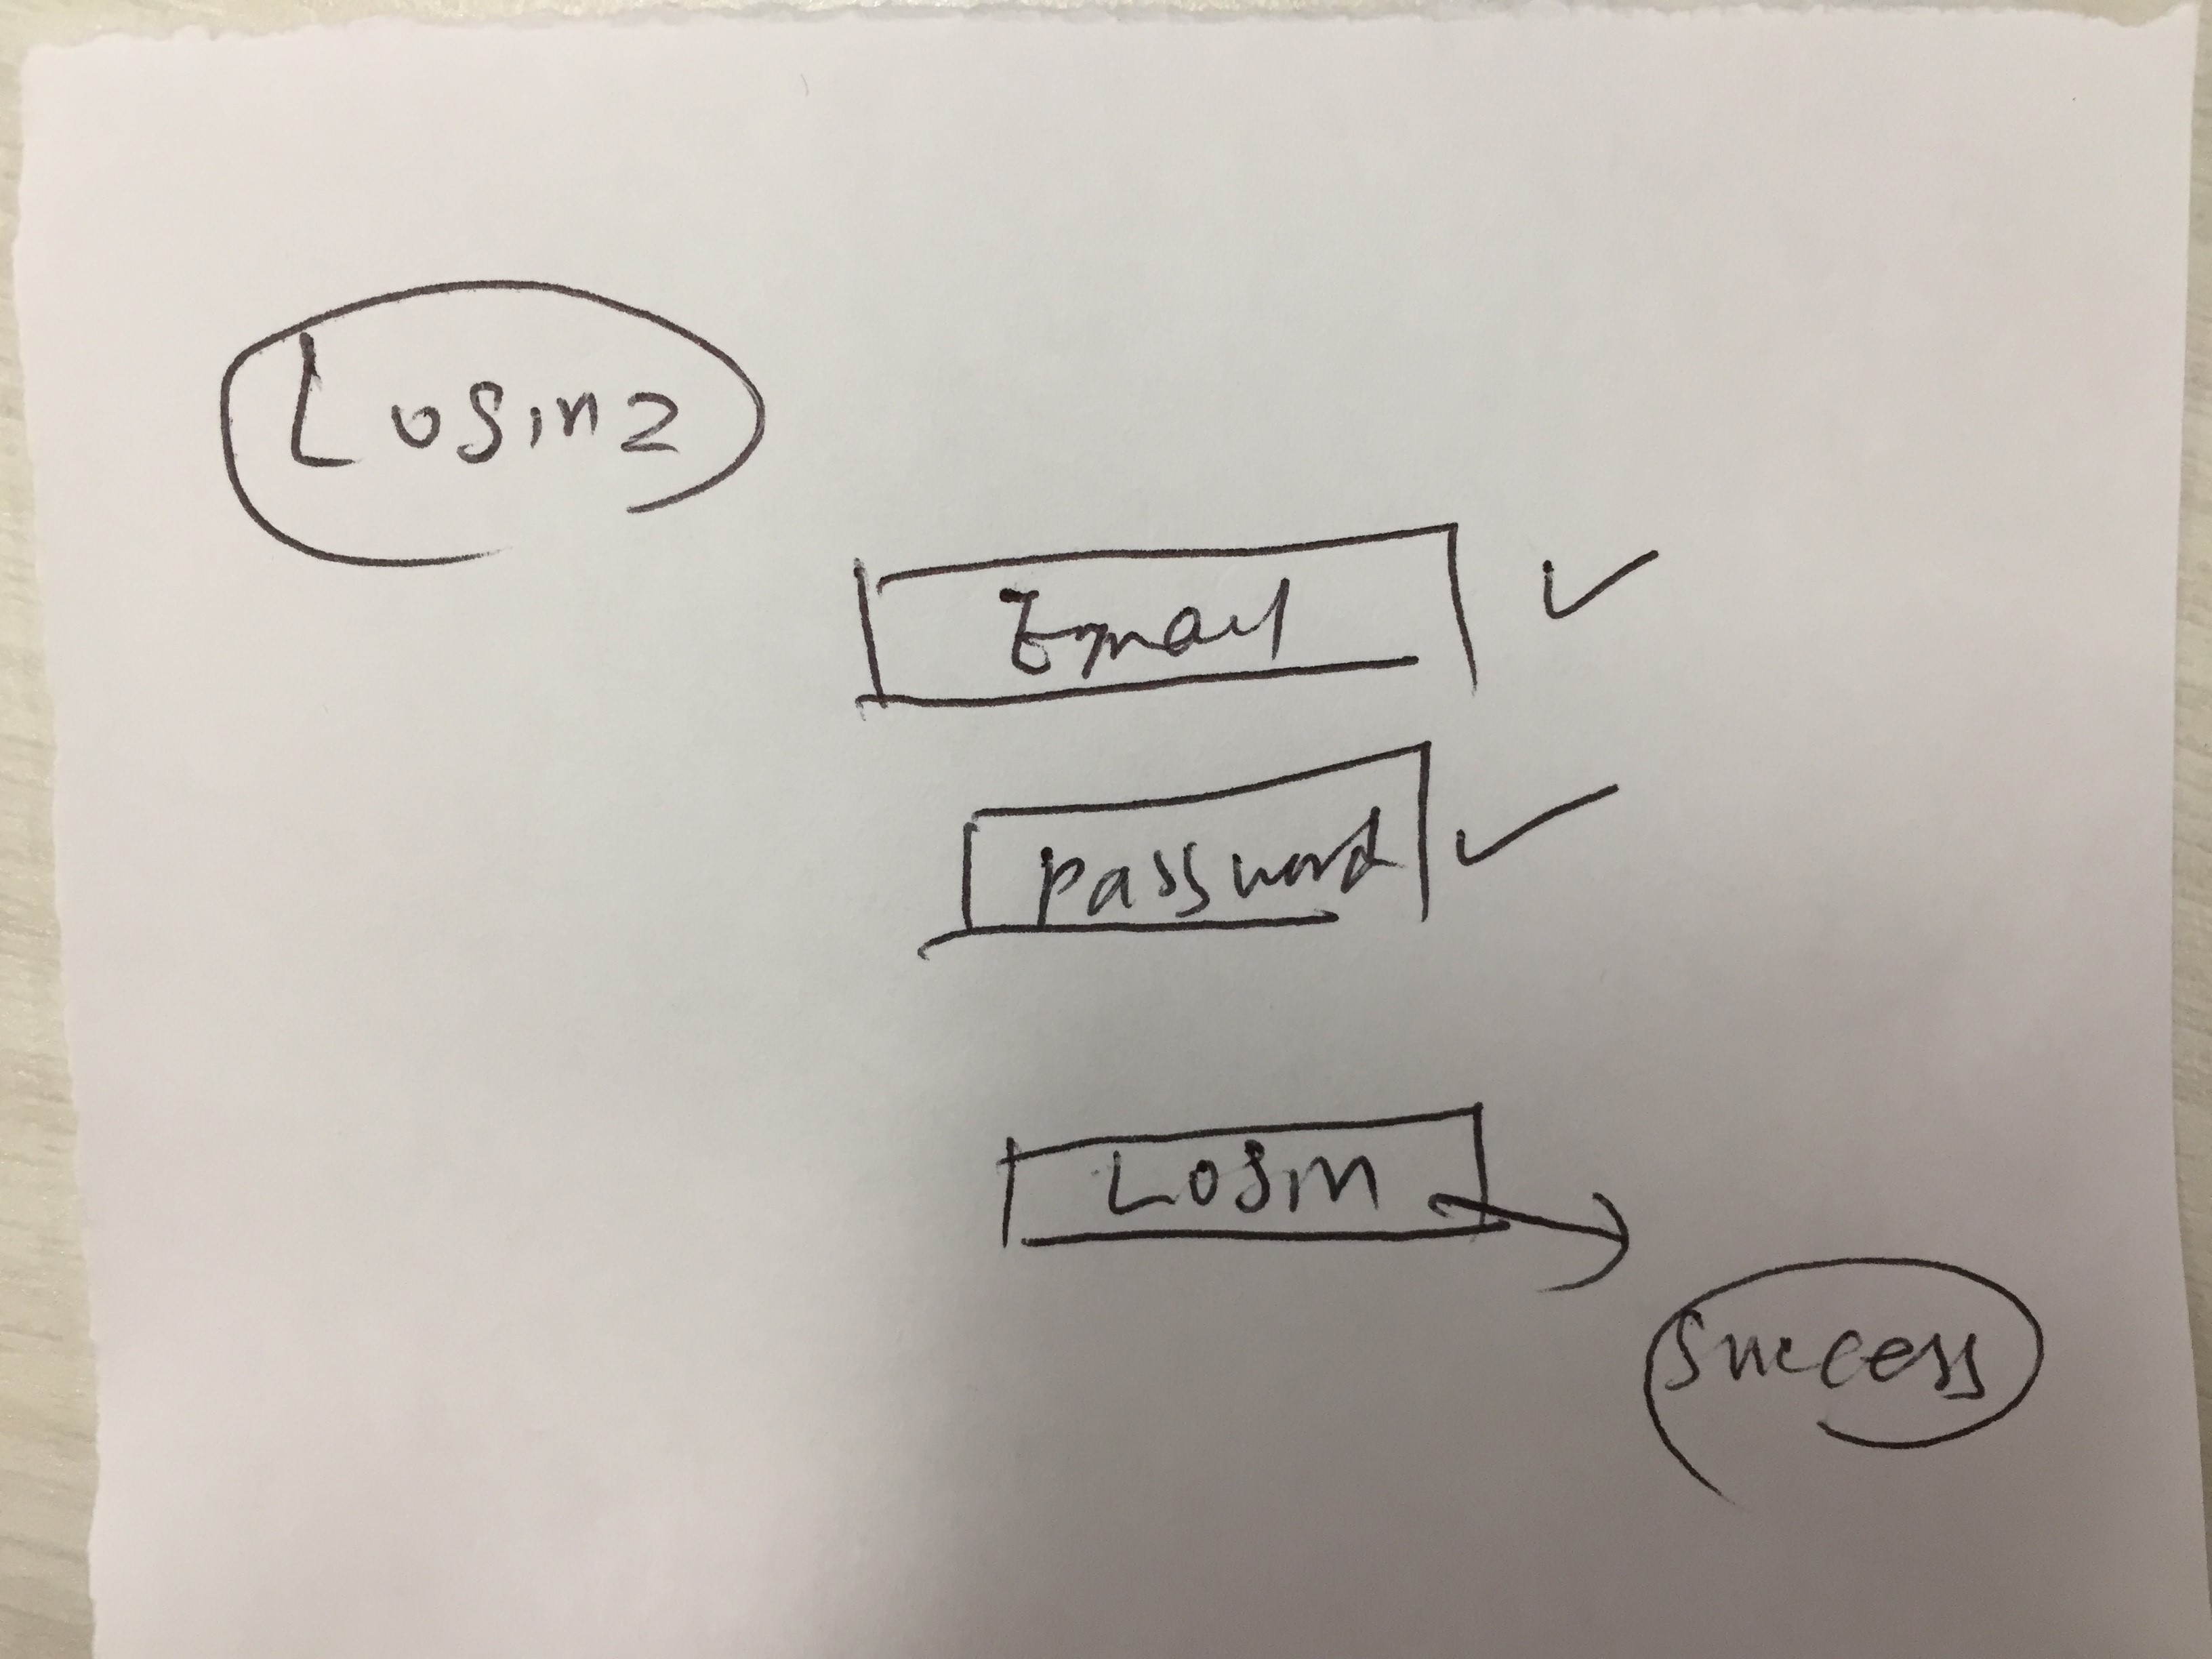 Login2
Email
password
Login
success